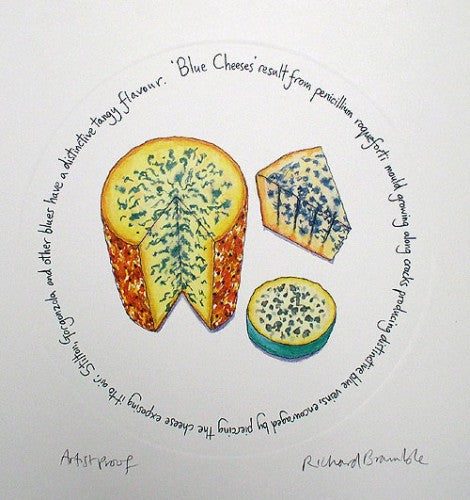 'Blue Cheeses' result from penicillium roqueforti mould growing along cracks producing distinctive blue veins, encouraged by piercing the cheese exposing it to air. Stilton, Gorgonzola and other blues have a distinctive tangy flavour.
Artist proof
Richard Bramble